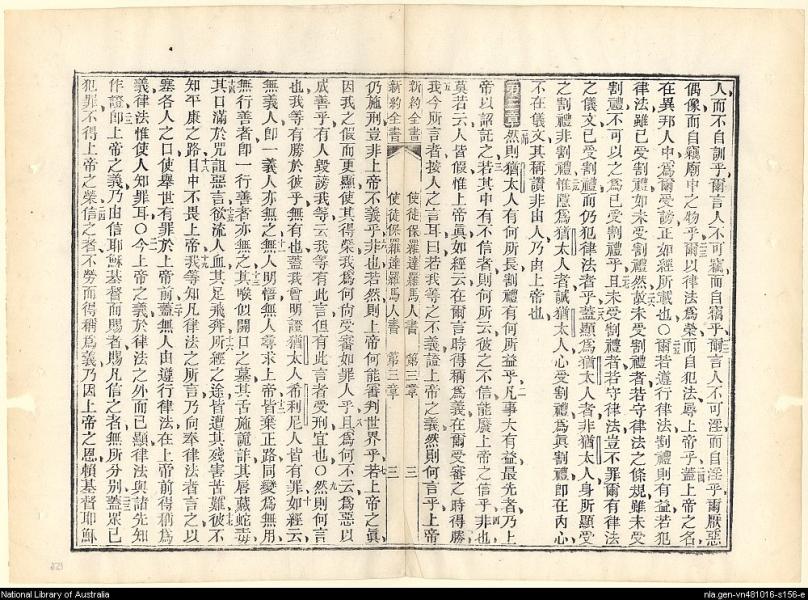 人而不自訓乎爾言人不可竊而自竊乎爾言人不可淫而自淫乎爾厭惡
偶像而自竊廟中之物乎爾以律法爲榮而自犯法辱上帝乎蓋上帝之名
在異邦人中爲爾受謗正如經所載也〇爾若遵行律法割禮則有益若犯
律法雖已受割禮如未受割禮然故未受割禮者若守律法之條規雖未受
割禮不可以之爲已受割禮乎且未受割禮者若守律法豈不罪爾有律法
之儀文已受割禮而仍犯律法者乎蓋顯爲猶太人者非猶太人身所顯受
之割禮非割禮惟隱爲猶太人者誠猶太人心受割禮爲眞割禮卽在內心
不在儀文其稱讚非由人乃由上帝也
第三章 然則猶太人有何所長割禮有何所益乎凡事大有益最先者乃上
帝以諭託之若其中有不信者則何所云彼之不信能廢上帝之信乎非也
莫若云人皆假惟上帝眞如經云在爾言時得稱爲義在爾受審之時得勝
我今所言者按人之言耳曰若我等之不義證上帝之義然則何言乎上帝
新約全書 使徒保羅達羅馬人書 第三章 三
新約全書 使徒保羅達羅馬人書 第三章 三
仍施刑豈非上帝不義乎非也若然則上帝何能審判世界乎若上帝之眞
因我之假而更顯使其得榮我爲何尚受審如罪人乎且爲何不云爲惡以
成善乎有人毀謗我等云我等有此言但有此言者受刑宜也〇然則何言
也我等有勝於彼乎無有也蓋我曾明證猶太人希利尼人皆有罪如經云
無義人卽一義人亦無之無人明悟無人尋求上帝皆棄正路同變爲無用
無行善者卽一行善者亦無之其喉似開口之墓其舌施詭詐其唇藏蛇毒
其口滿於咒詛惡言欲流人血其足飛奔所經之途皆遭其殘害苦難彼不
知平康之路目中不畏上帝我等知凡律法之所言乃向奉律法者言之以
塞各人之口使舉世有罪於上帝前蓋無人由遵行律法在上帝前得稱爲
義律法惟使人知罪耳〇今上帝之義於律法之外而已顯律法與諸先知
作證卽上帝之義乃由信耶穌基督而賜者賜凡信之者無所分別蓋眾已
犯罪不得上帝之榮信之者不勞而得稱爲義乃因上帝之恩賴基督耶穌
National Library of Australia
nla.gen-vn481016-s156-e